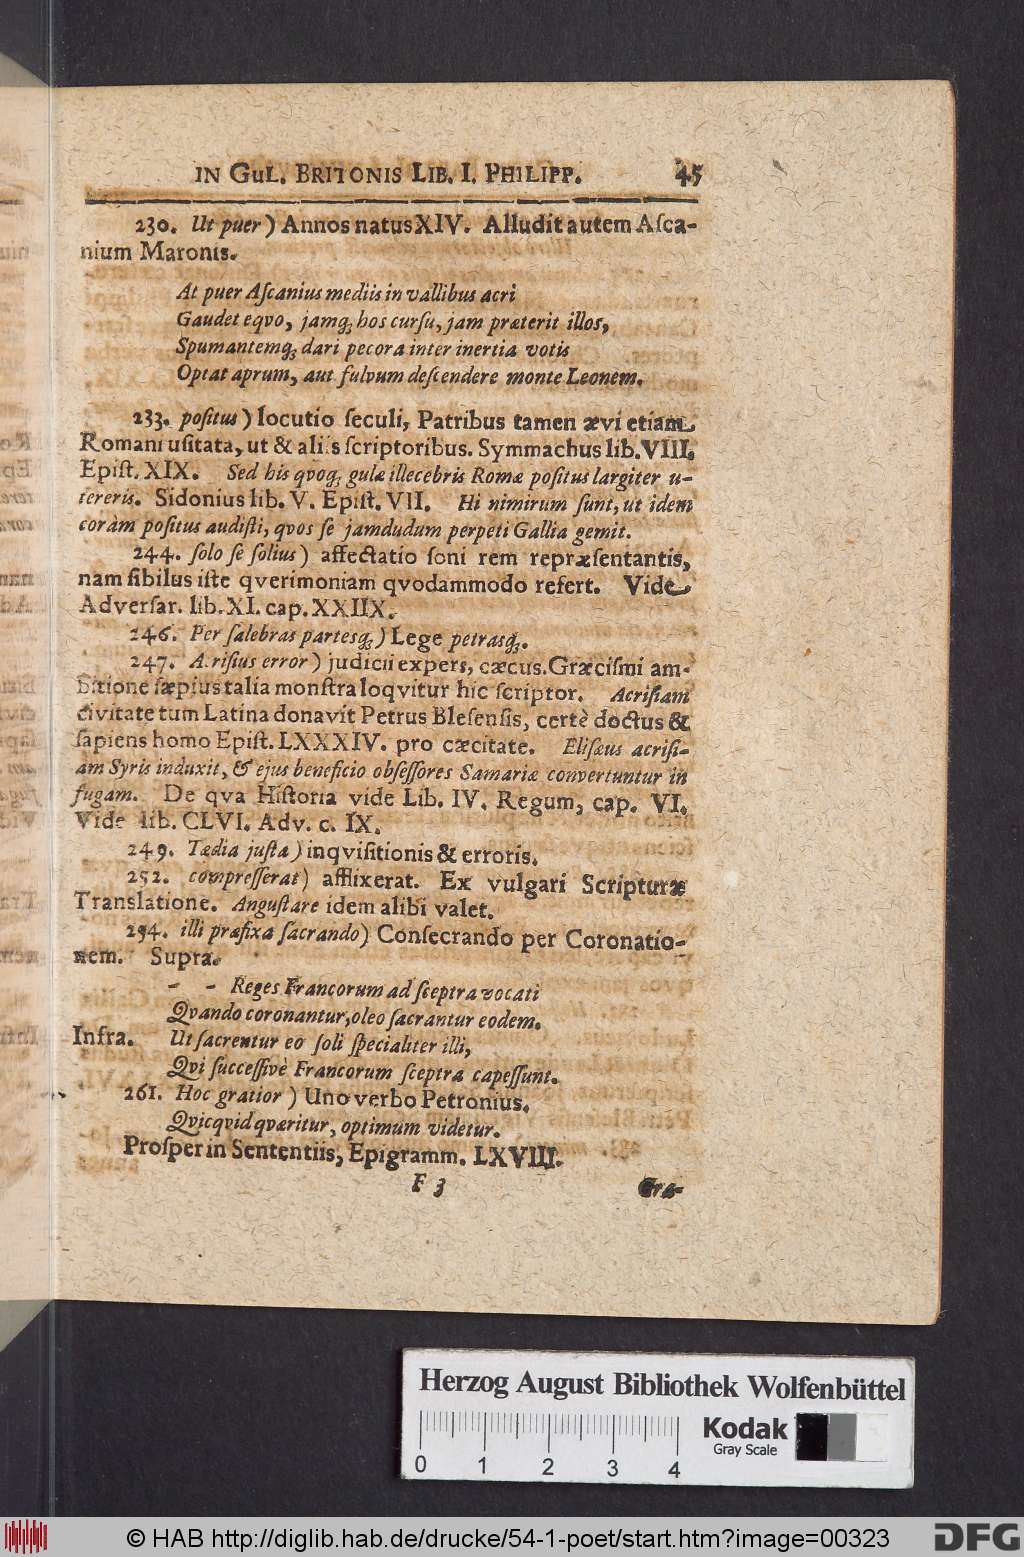 IN GuL. BRITONIS LIB. I. PHILIPP. 45
230. Ut puer) Annos natus XIV. Alludit autem Aſca-
nium Maronis.
At puer Aſcanius mediis in vallibus acri
Gaudet eqvo, jamq; hos curſu, jam præterit illos,
Spumantemq; dari pecora inter inertia votis
Optat aprum, aut fulvum deſcendere monte Leonem.
233. poſitus) locutio ſeculi, Patribus tamen ævi etiam
Romani uſitata, ut & aliis ſcriptoribus. Symmachus lib. VIII.
Epiſt. XIX. Sed his qvoq; gulæ illecebris Romæ poſitus largiter u-
tereris. Sidonius lib. V. Epiſt. VII. Hi nimirum ſunt, ut idem
coràm poſitus audiſti, qvos ſe jamdudum perpeti Gallia gemit.
244. ſolo ſe ſolius) affectatio ſoni rem repræſentantis,
nam ſibilus iſte qverimoniam qvodammodo refert. Vide
Adverſar. lib. XI. cap. XXIIX.
246. Per ſalebras partesq;) Lege petrasq;.
247. Acriſius error) judicii expers, cæcus. Græciſmi am-
bitione ſæpius talia monſtra loqvitur hic ſcriptor. Acriſiam
civitate tum Latina donavit Petrus Bleſenſis, certè doctus &
ſapiens homo Epiſt. LXXXIV. pro cæcitate. Eliſæus acriſi-
am Syris induxit, & ejus beneficio obſeſſores Samariæ convertuntur in
fugam. De qva Hiſtoria vide Lib. IV. Regum, cap. VI.
Vide lib. CLVI. Adv. c. IX.
249. Tædia juſta) inqviſitionis & erroris.
252. compreſſerat) afflixerat. Ex vulgari Scripturæ
Translatione. Anguſtare idem alibi valet.
254. illi præfixa ſacrando) Conſecrando per Coronatio-
nem. Supra.
- - Reges Francorum ad ſceptra vocati
Qvando coronantur, oleo ſacrantur eodem.
Infra. Ut ſacrentur eo ſoli ſpecialiter illi,
Qvi ſucceſſivè Francorum ſceptra capeſſunt.
261. Hoc gratior) Uno verbo Petronius.
Qvicqvid qværitur, optimum videtur.
Proſper in Sententiis, Epigramm. LXVIII.
F 3 Gra-
Herzog August Bibliothek Wolfenbüttel
0 1 2 3 4
Kodak
Gray Scale
© HAB http://diglib.hab.de/drucke/54-1-poet/start.htm?image=00323
DFG